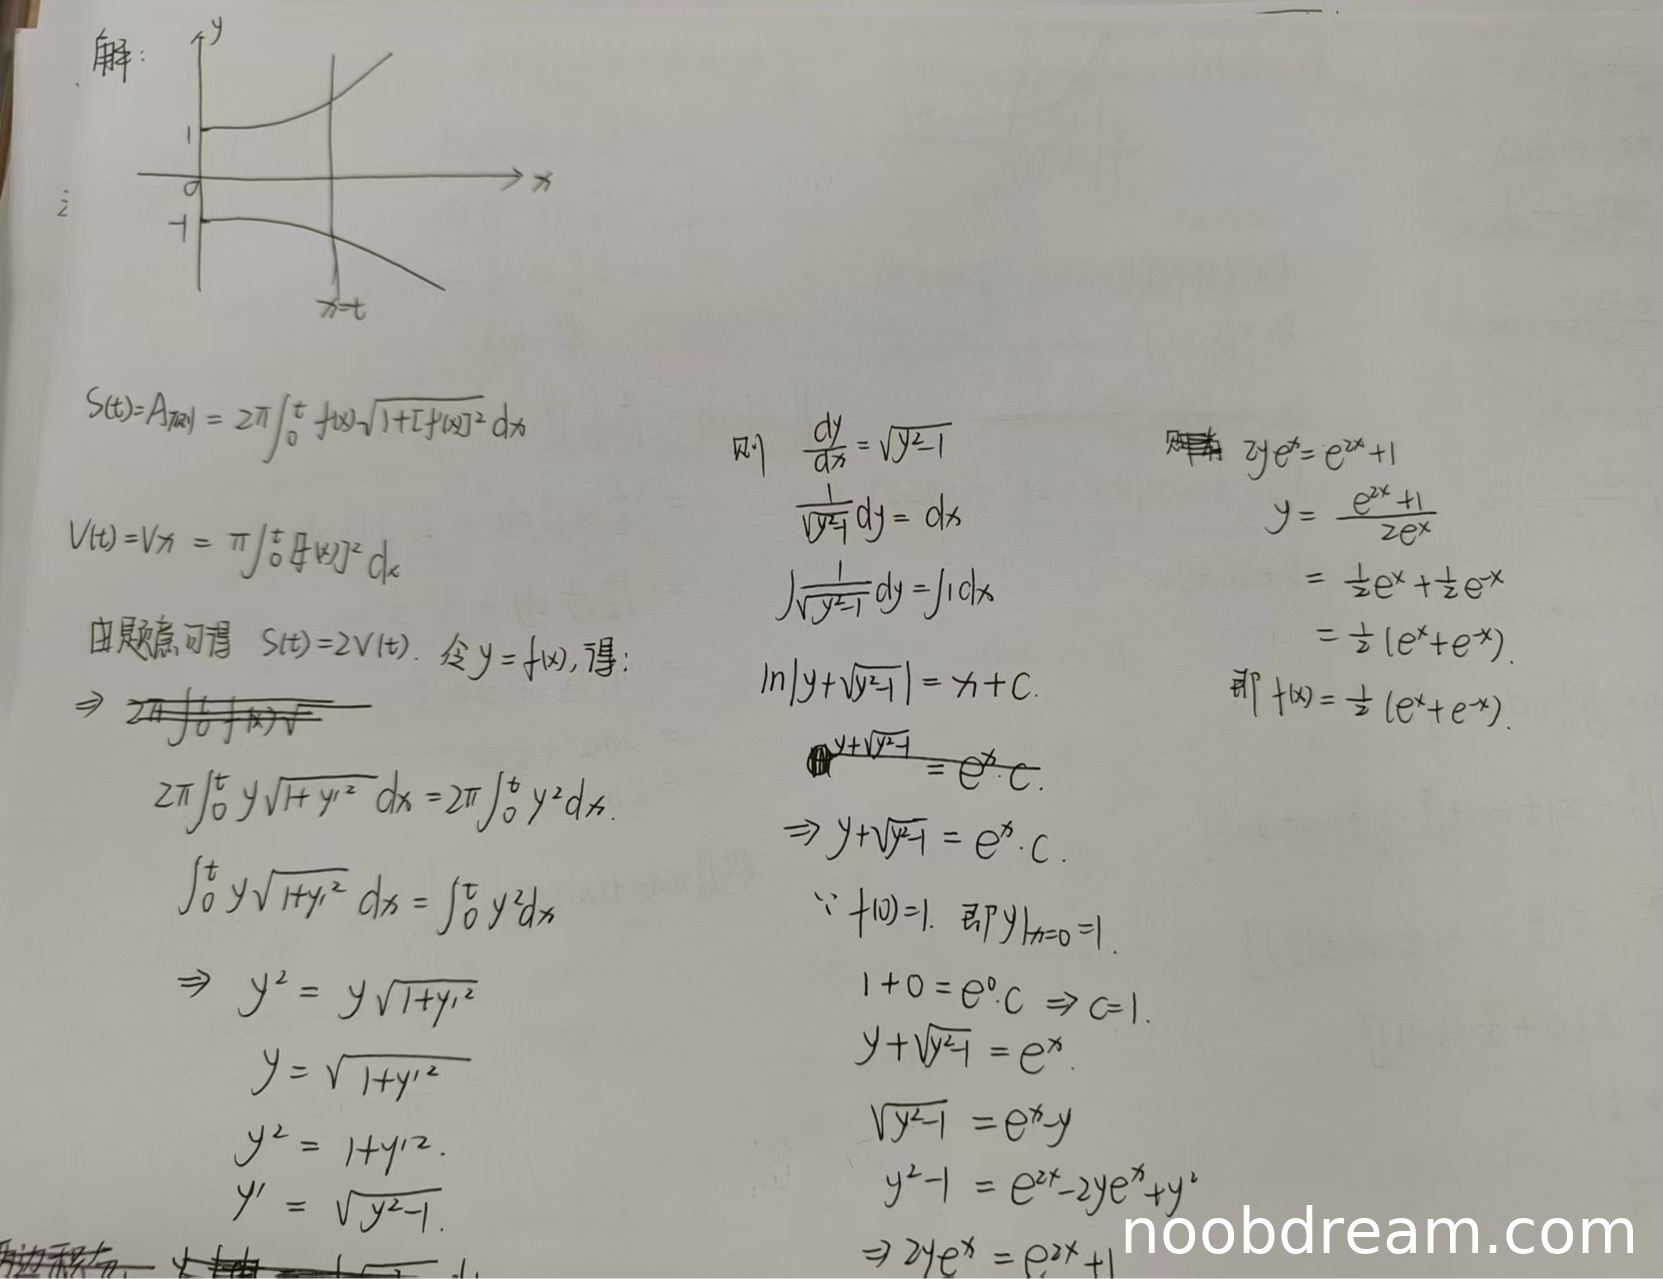 解:
y
1
0
x
-1
x=t
S(t)=A表 = 2π∫₀ᵗ f(x)√(1+[f'(x)]²) dx
V(t)=Vx = π∫₀ᵗ [f(x)]² dx
由题意可得 S(t)=2V(t). 令y=f(x),得:
⇒
2π∫₀ᵗ y√(1+y'²) dx = 2π∫₀ᵗ y²dx.
∫₀ᵗ y√(1+y'²) dx = ∫₀ᵗ y²dx
⇒ y² = y√(1+y'²)
y = √(1+y'²)
y² = 1+y'².
y' = √(y²-1).
则 dy/dx = √(y²-1)
1/√(y²-1) dy = dx
∫ 1/√(y²-1) dy = ∫1dx
ln|y+√(y²-1)| = x+C.
y+√(y²-1) = eˣ·C.
⇒ y+√(y²-1) = eˣ·C.
∵ f(0)=1. 即y|x=0 =1.
1+0=e⁰·C ⇒ C=1.
y+√(y²-1) = eˣ.
√(y²-1) = eˣ-y
y²-1 = e²ˣ-2yeˣ+y²
⇒ 2yeˣ = e²ˣ+1
2yeˣ=e²ˣ+1
y = (e²ˣ+1)/(2eˣ)
= ½eˣ+½e⁻ˣ
= ½(eˣ+e⁻ˣ).
即 f(x) = ½(eˣ+e⁻ˣ).
noobdream.com